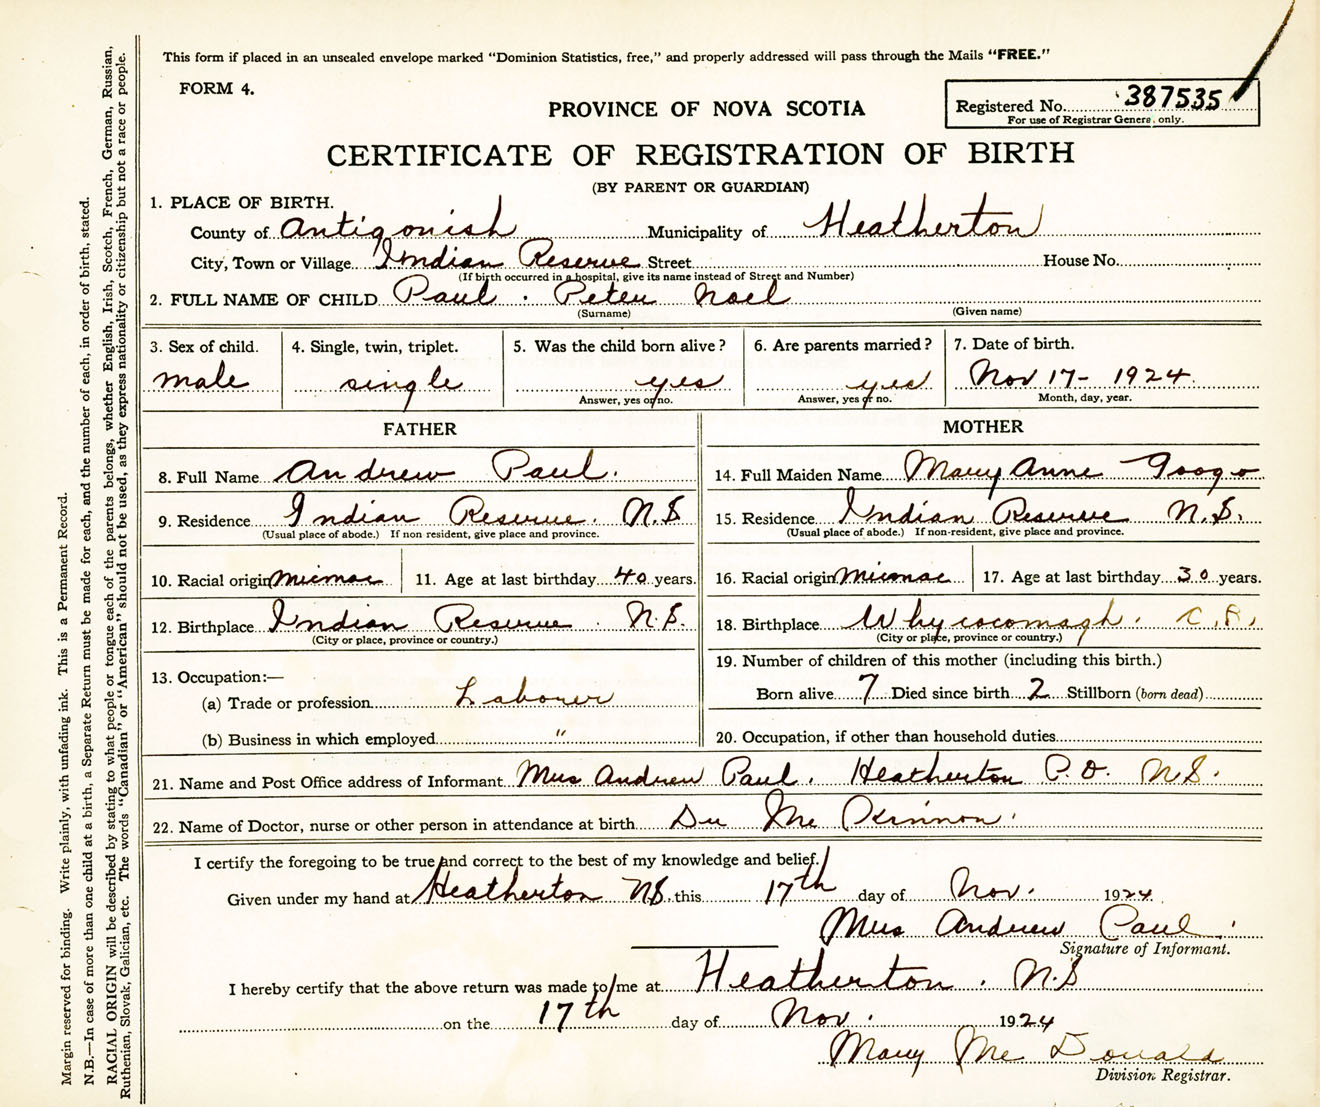 This form if placed in an unsealed envelope marked “Dominion Statistics, free,” and properly addressed will pass through the Mails “FREE.”
FORM 4.
PROVINCE OF NOVA SCOTIA
Registered No. 387535
For use of Registrar General only.
CERTIFICATE OF REGISTRATION OF BIRTH
(BY PARENT OR GUARDIAN)
1. PLACE OF BIRTH.
County of Antigonish Municipality of Heatherton
City, Town or Village Indian Reserve Street House No.
(If birth occurred in a hospital, give its name instead of Street and Number)
2. FULL NAME OF CHILD Paul. Peter Noel
(Surname) (Given name)
3. Sex of child. 4. Single, twin, triplet. 5. Was the child born alive? 6. Are parents married? 7. Date of birth.
male single yes yes Nov 17- 1924
Answer, yes or no. Answer, yes or no. Month, day, year.
FATHER MOTHER
8. Full Name Andrew Paul. 14. Full Maiden Name Mary Anne Googo
9. Residence Indian Reserve. N.S 15. Residence Indian Reserve N.S.
(Usual place of abode.) If non resident, give place and province. (Usual place of abode.) If non-resident, give place and province.
10. Racial origin Micmac 11. Age at last birthday 40 years. 16. Racial origin Micmac 17. Age at last birthday 30 years.
12. Birthplace Indian Reserve. N.S. 18. Birthplace Whycocomagh. C.B.
(City or place, province or country.) (City or place, province or country.)
13. Occupation:— 19. Number of children of this mother (including this birth.)
(a) Trade or profession Laborer Born alive 7 Died since birth 2 Stillborn (born dead)
(b) Business in which employed " 20. Occupation, if other than household duties
21. Name and Post Office address of Informant Mrs Andrew Paul. Heatherton P.O. N.S.
22. Name of Doctor, nurse or other person in attendance at birth Dr Mc Kinnon.
I certify the foregoing to be true and correct to the best of my knowledge and belief.
Given under my hand at Heatherton NS. this 17th day of Nov. 1924.
Mrs Andrew Paul.
Signature of Informant.
I hereby certify that the above return was made to me at Heatherton. N.S
on the 17th day of Nov. 1924
Mary Mc Donald
Division Registrar.
Margin reserved for binding. Write plainly, with unfading ink. This is a Permanent Record.
N.B.—In case of more than one child at a birth, a Separate Return must be made for each, and the number of each, in order of birth, stated.
RACIAL ORIGIN will be described by stating to what people or tongue each of the parents belongs, whether English, Irish, Scotch, French, German, Russian,
Ruthenian, Slovak, Galician, etc. The words “Canadian” or “American” should not be used, as they express nationality or citizenship but not a race or people.